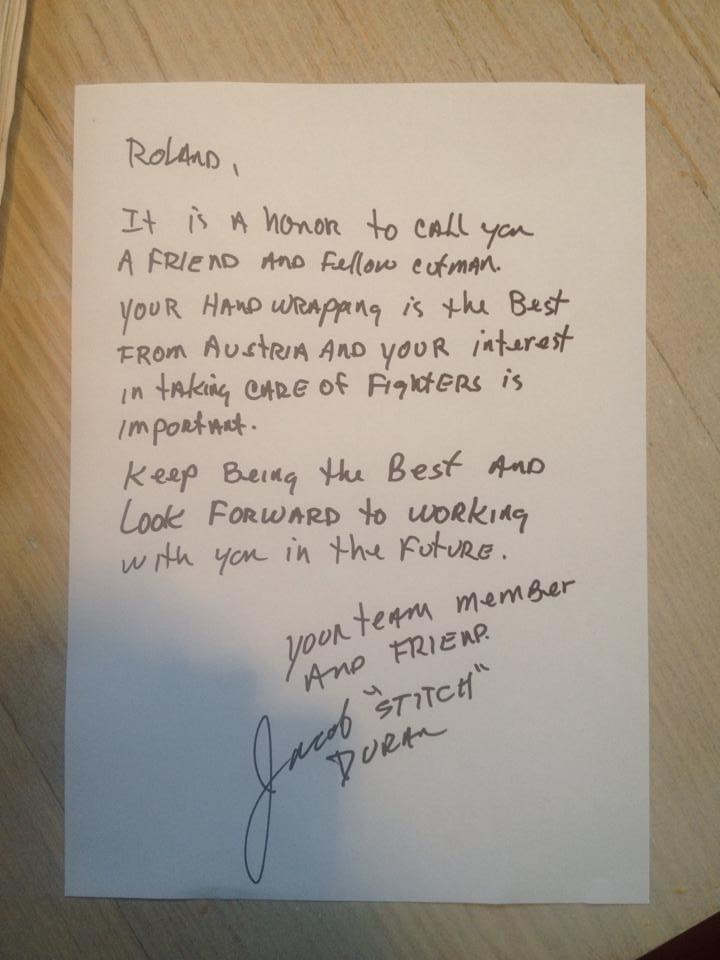 Roland,
It is a honor to call you
a friend and fellow cutman.
Your hand wrapping is the Best
from Austria and your interest
in taking care of fighters is
important.
Keep Being the Best and
Look forward to working
with you in the future.
your team member
and friend.
Jacob "STITCH"
Duran